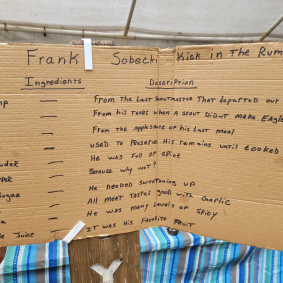 Frank Sobecki Kick in The Rum
Ingredients Description
From the Last Scoutmaster That departed out
From his toads when a scout didnt make Eagle
From the applesauce of his last meal
used to Preserve his remains until cooked
He was full of spice
Because why not?
He needed sweetening up
All meat tastes good with Garlic
He was many levels of spicy
It was his favorite fruit
Juice